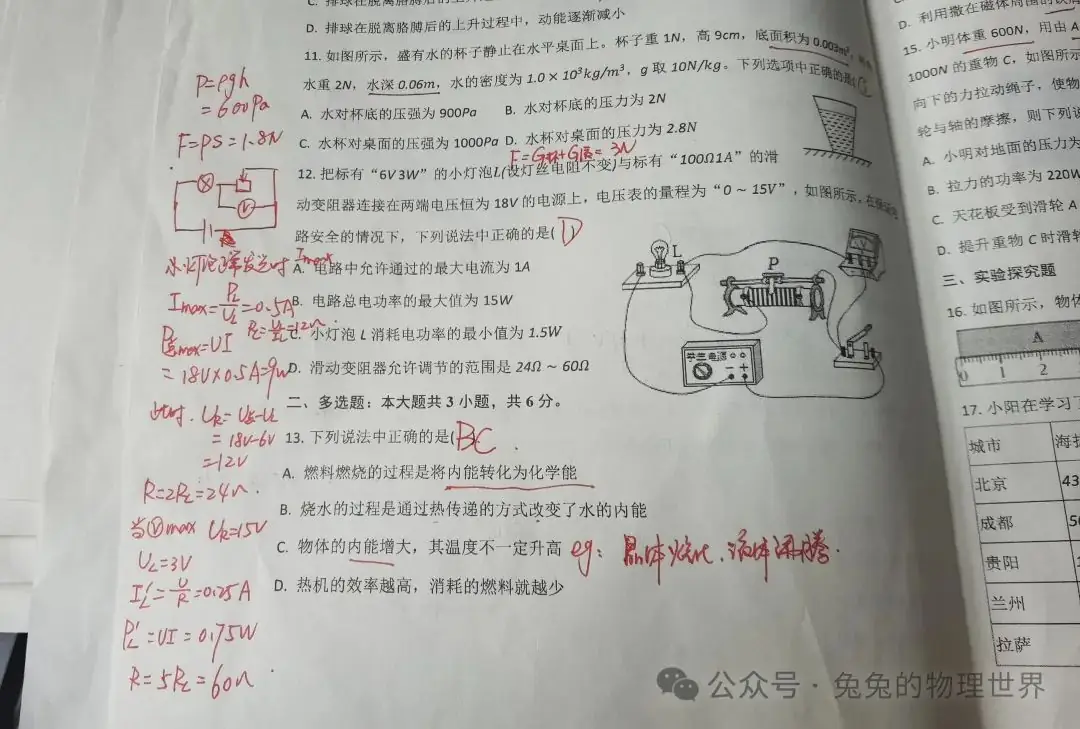 C. 排球在脱离胳膊后的上
D. 排球在脱离胳膊后的上升过程中，动能逐渐减小
11. 如图所示，盛有水的杯子静止在水平桌面上。杯子重 1N，高 9cm，底面积为 0.003m²，
水重 2N，水深 0.06m，水的密度为 1.0 × 10³kg/m³，g 取 10N/kg。下列选项中正确的是( C
A. 水对杯底的压强为 900Pa B. 水对杯底的压力为 2N
C. 水杯对桌面的压强为 1000Pa D. 水杯对桌面的压力为 2.8N
F=G杯+G液= 3N
12. 把标有“6V 3W”的小灯泡L(设灯丝电阻不变)与标有“100Ω1A”的滑
动变阻器连接在两端电压恒为 18V 的电源上，电压表的量程为“0 ~ 15V”，如图所示，在
路安全的情况下，下列说法中正确的是( D
A. 电路中允许通过的最大电流为 1A
B. 电路总电功率的最大值为 15W
C. 小灯泡 L 消耗电功率的最小值为 1.5W
D. 滑动变阻器允许调节的范围是 24Ω ~ 60Ω
L
P
V
学生电源
− +
二、多选题：本大题共 3 小题，共 6 分。
13. 下列说法中正确的是( BC
A. 燃料燃烧的过程是将内能转化为化学能
B. 烧水的过程是通过热传递的方式改变了水的内能
C. 物体的内能增大，其温度不一定升高 eg: 晶体熔化、液体沸腾.
D. 热机的效率越高，消耗的燃料就越少
P=ρgh
= 600Pa
F=PS=1.8N
V
小灯泡正常发光时 Imax
Imax=PL/UL=0.5A
RL=UL/IL=12Ω
P总max=UI
= 18V×0.5A=9W
此时. UR= U总-UL
= 18V-6V
=12V
R=2RL=24Ω.
当Ⓥmax UR=15V
UL=3V
IL'=U/R=0.25A
PL'=UI=0.75W
R=5RL=60Ω.
D. 利用撒在磁体周围的铁屑
15. 小明体重 600N，用由 A
1000N 的重物 C，如图所示
向下的力拉动绳子，使物
轮与轴的摩擦，则下列说
A. 小明对地面的压力为
B. 拉力的功率为 220W
C. 天花板受到滑轮 A
D. 提升重物 C 时滑轮
三、实验探究题
16. 如图所示，物体
A
0 1 2
17. 小阳在学习了
城市 海拔
北京 43
成都 50
贵阳
兰州
拉萨
公众号 · 兔兔的物理世界